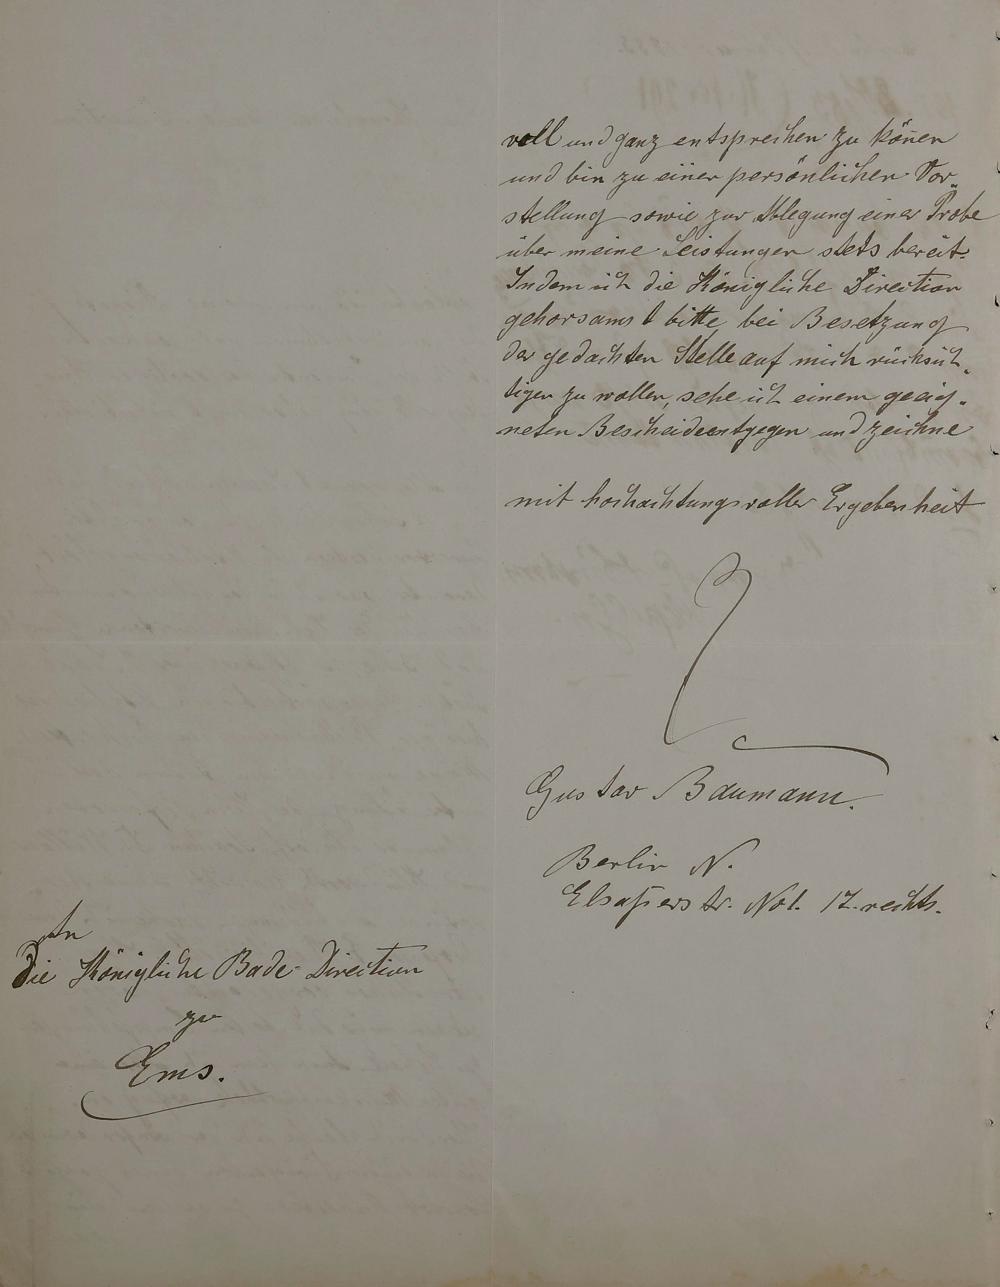 voll und ganz entsprechen zu kön̄en
und bin zu einer persönlichen Vor-
stellung sowie zur Ablegung einer Probe
über meine Leistungen stets bereit.
Indem ich die Königliche Direction
gehorsamst bitte bei Besetzung
der gedachten Stelle auf mich rücksich-
tigen zu wollen, sehe ich einem geeig-
neten Bescheide entgegen und zeichne
mit hochachtungsvoller Ergebenheit
Gustav Baumann.
Berlin N.
Elsaßerstr. No 1. 17. rechts.
An
die Königliche Bade-Direction
zu
Ems.